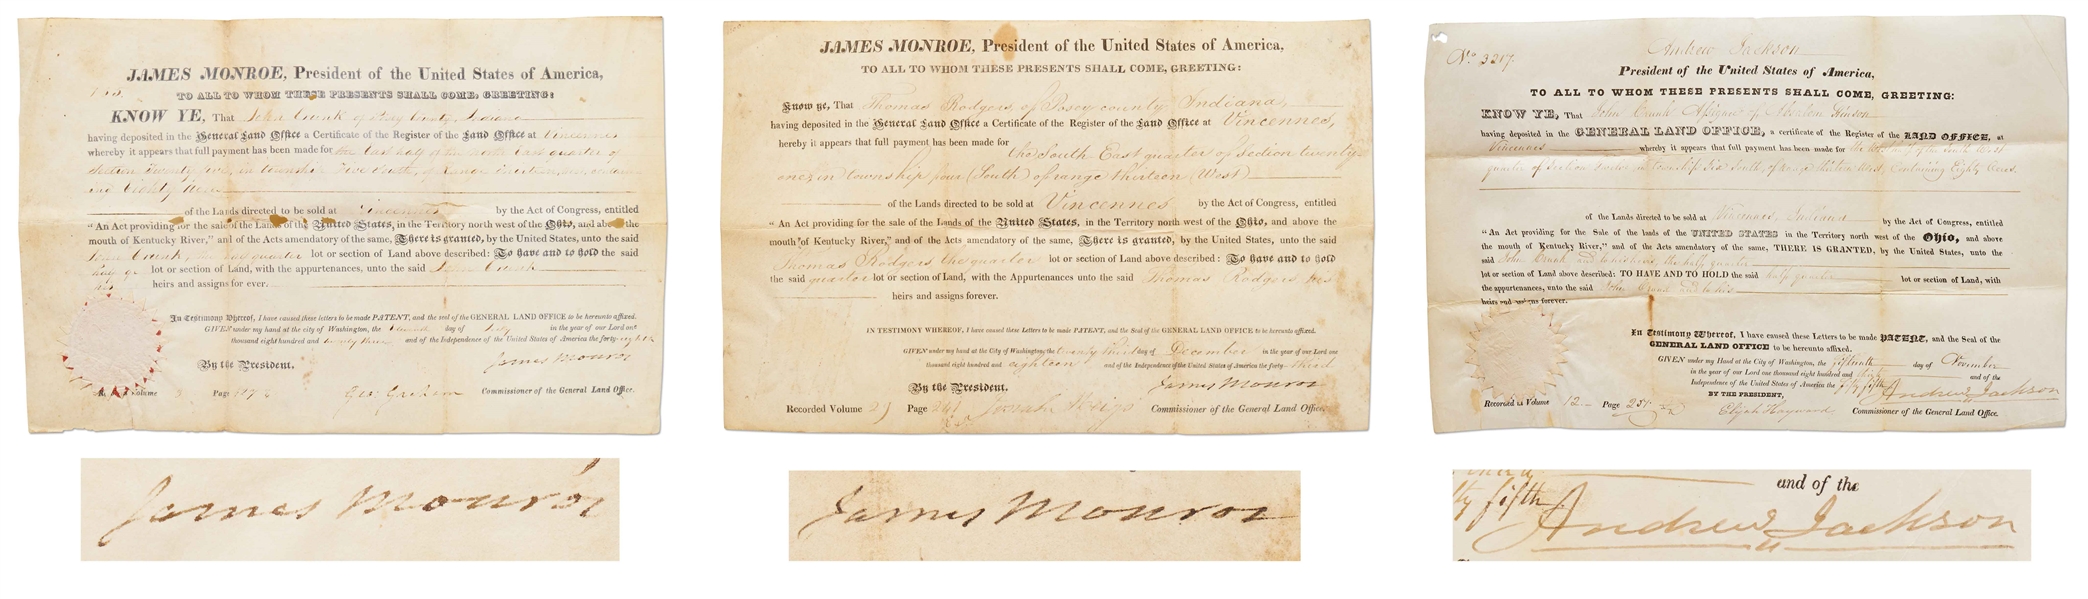 JAMES MONROE, President of the United States of America,
TO ALL TO WHOM THESE PRESENTS SHALL COME, GREETING:
KNOW YE, That John Crunk of County, Indiana
having deposited in the General Land Office a Certificate of the Register of the Land Office at Vincennes
whereby it appears that full payment has been made for the East half of the North East quarter of
Section Twenty five, in township Five South, of Range
and Eighty Acres
of the Lands directed to be sold at Vincennes by the Act of Congress, entitled
"An Act providing for the sale of the Lands of the United States, in the Territory north west of the Ohio, and above the
mouth of Kentucky River," and of the Acts amendatory of the same, There is granted, by the United States, unto the said
John Crunk, the quarter lot or section of Land above described: To have and to hold the said
half qr lot or section of Land, with the appurtenances, unto the said John Crunk
heirs and assigns for ever.
In Testimony Whereof, I have caused these letters to be made PATENT, and the seal of the GENERAL LAND OFFICE to be hereunto affixed.
GIVEN under my hand at the city of Washington, the day of July in the year of our Lord one
thousand eight hundred and twenty three and of the Independence of the United States of America the forty-eighth
By the President. James Monroe
Volume Page Geo: Graham Commissioner of the General Land Office.
James Monroe
JAMES MONROE, President of the United States of America,
TO ALL TO WHOM THESE PRESENTS SHALL COME, GREETING:
Know ye, That Thomas Rodgers, of Posey county Indiana,
having deposited in the General Land Office a Certificate of the Register of the Land Office at Vincennes,
hereby it appears that full payment has been made for
the South East quarter of Section twenty
one, in township four (South) of range thirteen (West)
of the Lands directed to be sold at Vincennes by the Act of Congress, entitled
"An Act providing for the sale of the Lands of the United States, in the Territory north west of the Ohio, and above the
mouth of Kentucky River," and of the Acts amendatory of the same, There is granted, by the United States, unto the said
Thomas Rodgers the quarter lot or section of Land above described: To have and to hold
the said quarter lot or section of Land, with the Appurtenances, unto the said Thomas Rodgers his
heirs and assigns forever.
IN TESTIMONY WHEREOF, I have caused these Letters to be made PATENT, and the Seal of the GENERAL LAND OFFICE to be hereunto affixed.
GIVEN under my hand at the City of Washington, the twenty third day of December in the year of our Lord one
thousand eight hundred and eighteen and of the Independence of the United States of America the forty-third
By the President. James Monroe
Recorded Volume 29 Page 241 Josiah Meigs Commissioner of the General Land Office.
James Monroe
Andrew Jackson
No. 3217.
President of the United States of America,
TO ALL TO WHOM THESE PRESENTS SHALL COME, GREETING:
KNOW YE, That John Crunk Assignee of
having deposited in the GENERAL LAND OFFICE, a certificate of the Register of the LAND OFFICE, at
Vincennes whereby it appears that full payment has been made for the half of the South West
quarter of Section Twelve, in township Six South, of range thirteen West, Containing Eighty Acres,
of the Lands directed to be sold at Vincennes, Indiana by the Act of Congress, entitled
"An Act providing for the Sale of the lands of the UNITED STATES in the Territory north west of the Ohio, and above
the mouth of Kentucky River," and of the Acts amendatory of the same, THERE IS GRANTED, by the United States, unto the
said John Crunk and to his heirs, the half quarter
lot or section of Land above described: TO HAVE AND TO HOLD the said half quarter lot or section of Land, with
the appurtenances, unto the said John Crunk and to his
heirs and assigns forever.
In Testimony Whereof, I have caused these Letters to be made PATENT, and the Seal of the
GENERAL LAND OFFICE to be hereunto affixed.
GIVEN under my Hand at the City of Washington, the fifteenth day of November
in the year of our Lord one thousand eight hundred and thirty and of the
Independence of the United States of America the fifty fifth
BY THE PRESIDENT, Andrew Jackson
Recorded in Volume 12 Page 251 Elijah Hayward Commissioner of the General Land Office.
and of the
ty fifth
Andrew Jackson